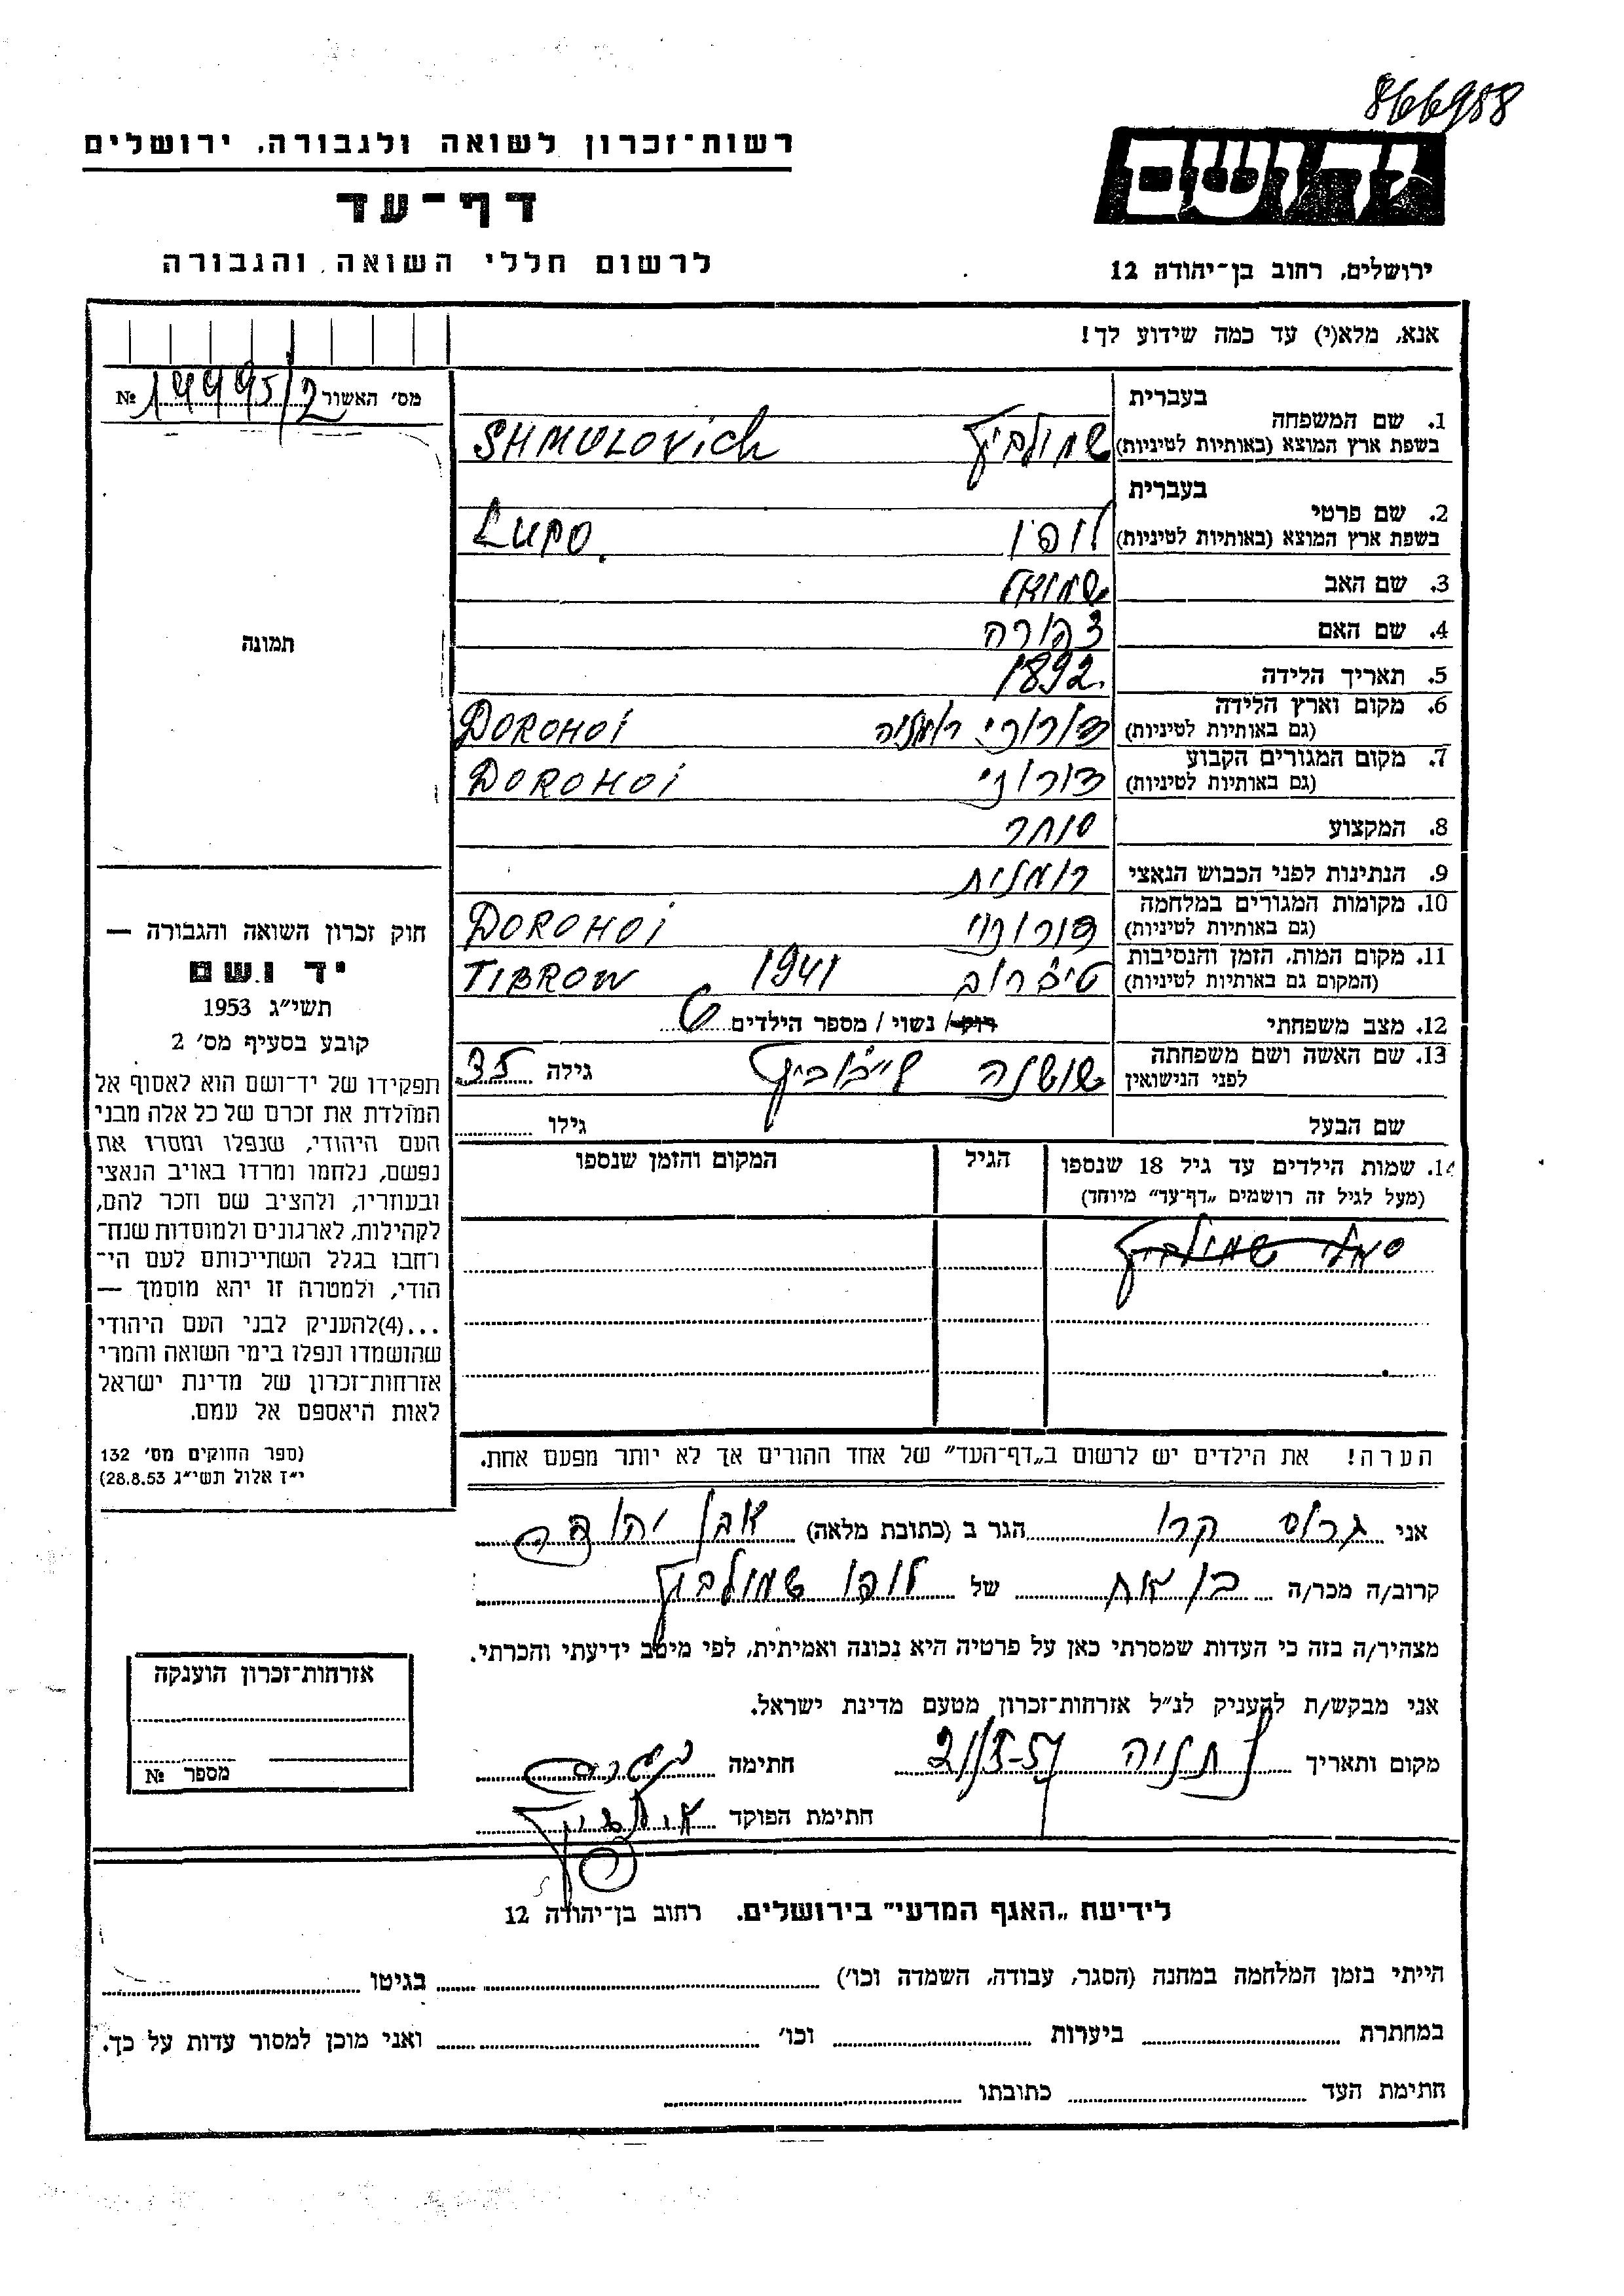 866988
רשות־זכרון לשואה ולגבורה, ירושלים
דף־עד
לרשום חללי השואה והגבורה
ידושם
ירושלים, רחוב בן־יהודה 12
אנא, מלא(י) עד כמה שידוע לך!
מס׳ האשור 14995/2 №
תמונה
1. שם המשפחה בעברית
בשפת ארץ המוצא (באותיות לטיניות) שמולביץ SHMULOVICH
2. שם פרטי בעברית
בשפת ארץ המוצא (באותיות לטיניות) לופו LUPO.
3. שם האב שמואל
4. שם האם צפורה
5. תאריך הלידה 1892.
6. מקום וארץ הלידה
(גם באותיות לטיניות) דורוהי רומניה DOROHOI
7. מקום המגורים הקבוע
(גם באותיות לטיניות) דורוהי DOROHOI
8. המקצוע סוחר
9. הנתינות לפני הכבוש הנאצי רומנית
10. מקומות המגורים במלחמה
(גם באותיות לטיניות) דורוהוי DOROHOI
11. מקום המות, הזמן והנסיבות
(המקום גם באותיות לטיניות) טיברוב 1941 TIBROW
12. מצב משפחתי רווק / נשוי / מספר הילדים
13. שם האשה ושם משפחתה
לפני הנישואין שושנה ליבוביץ גילה 35
שם הבעל גילו
14. שמות הילדים עד גיל 18 שנספו הגיל המקום והזמן שנספו
(מעל לגיל זה רושמים „דף־עד” מיוחד)
שמולביץ
הערה! את הילדים יש לרשום ב„דף־העד” של אחד ההורים אך לא יותר מפעם אחת.
חוק זכרון השואה והגבורה —
יד ושם
תשי״ג 1953
קובע בסעיף מס׳ 2
תפקידו של יד־ושם הוא לאסוף אל
המולדת את זכרם של כל אלה מבני
העם היהודי, שנפלו ומסרו את
נפשם, נלחמו ומרדו באויב הנאצי
ובעוזריו, ולהציב שם וזכר להם,
לקהילות, לארגונים ולמוסדות שנח־
רחבו בגלל השתייכותם לעם הי־
הודי, ולמטרה זו יהא מוסמך —
...(4)להעניק לבני העם היהודי
שהושמדו ונפלו בימי השואה והמרי
אזרחות־זכרון של מדינת ישראל
לאות היאספם אל עמם.
(ספר החוקים מס׳ 132
י״ז אלול תשי״ג 28.8.53)
אני גרוס קרו הגר ב (כתובת מלאה) אבן יהודה
קרוב/ה מכר/ה בן אח של לופו שמולביץ
מצהיר/ה בזה כי העדות שמסרתי כאן על פרטיה היא נכונה ואמיתית, לפי מיטב ידיעתי והכרתי.
אני מבקש/ת להעניק לנ״ל אזרחות־זכרון מטעם מדינת ישראל.
מקום ותאריך נתניה 21/3-57 חתימה
חתימת הפוקד
אזרחות־זכרון הוענקה
מספר №
לידיעת „האגף המדעי” בירושלים. רחוב בן־יהודה 12
הייתי בזמן המלחמה במחנה (הסגר, עבודה, השמדה וכו׳) בגיטו
במחתרת ביערות וכו׳ ואני מוכן למסור עדות על כך.
חתימת העד כתובתו